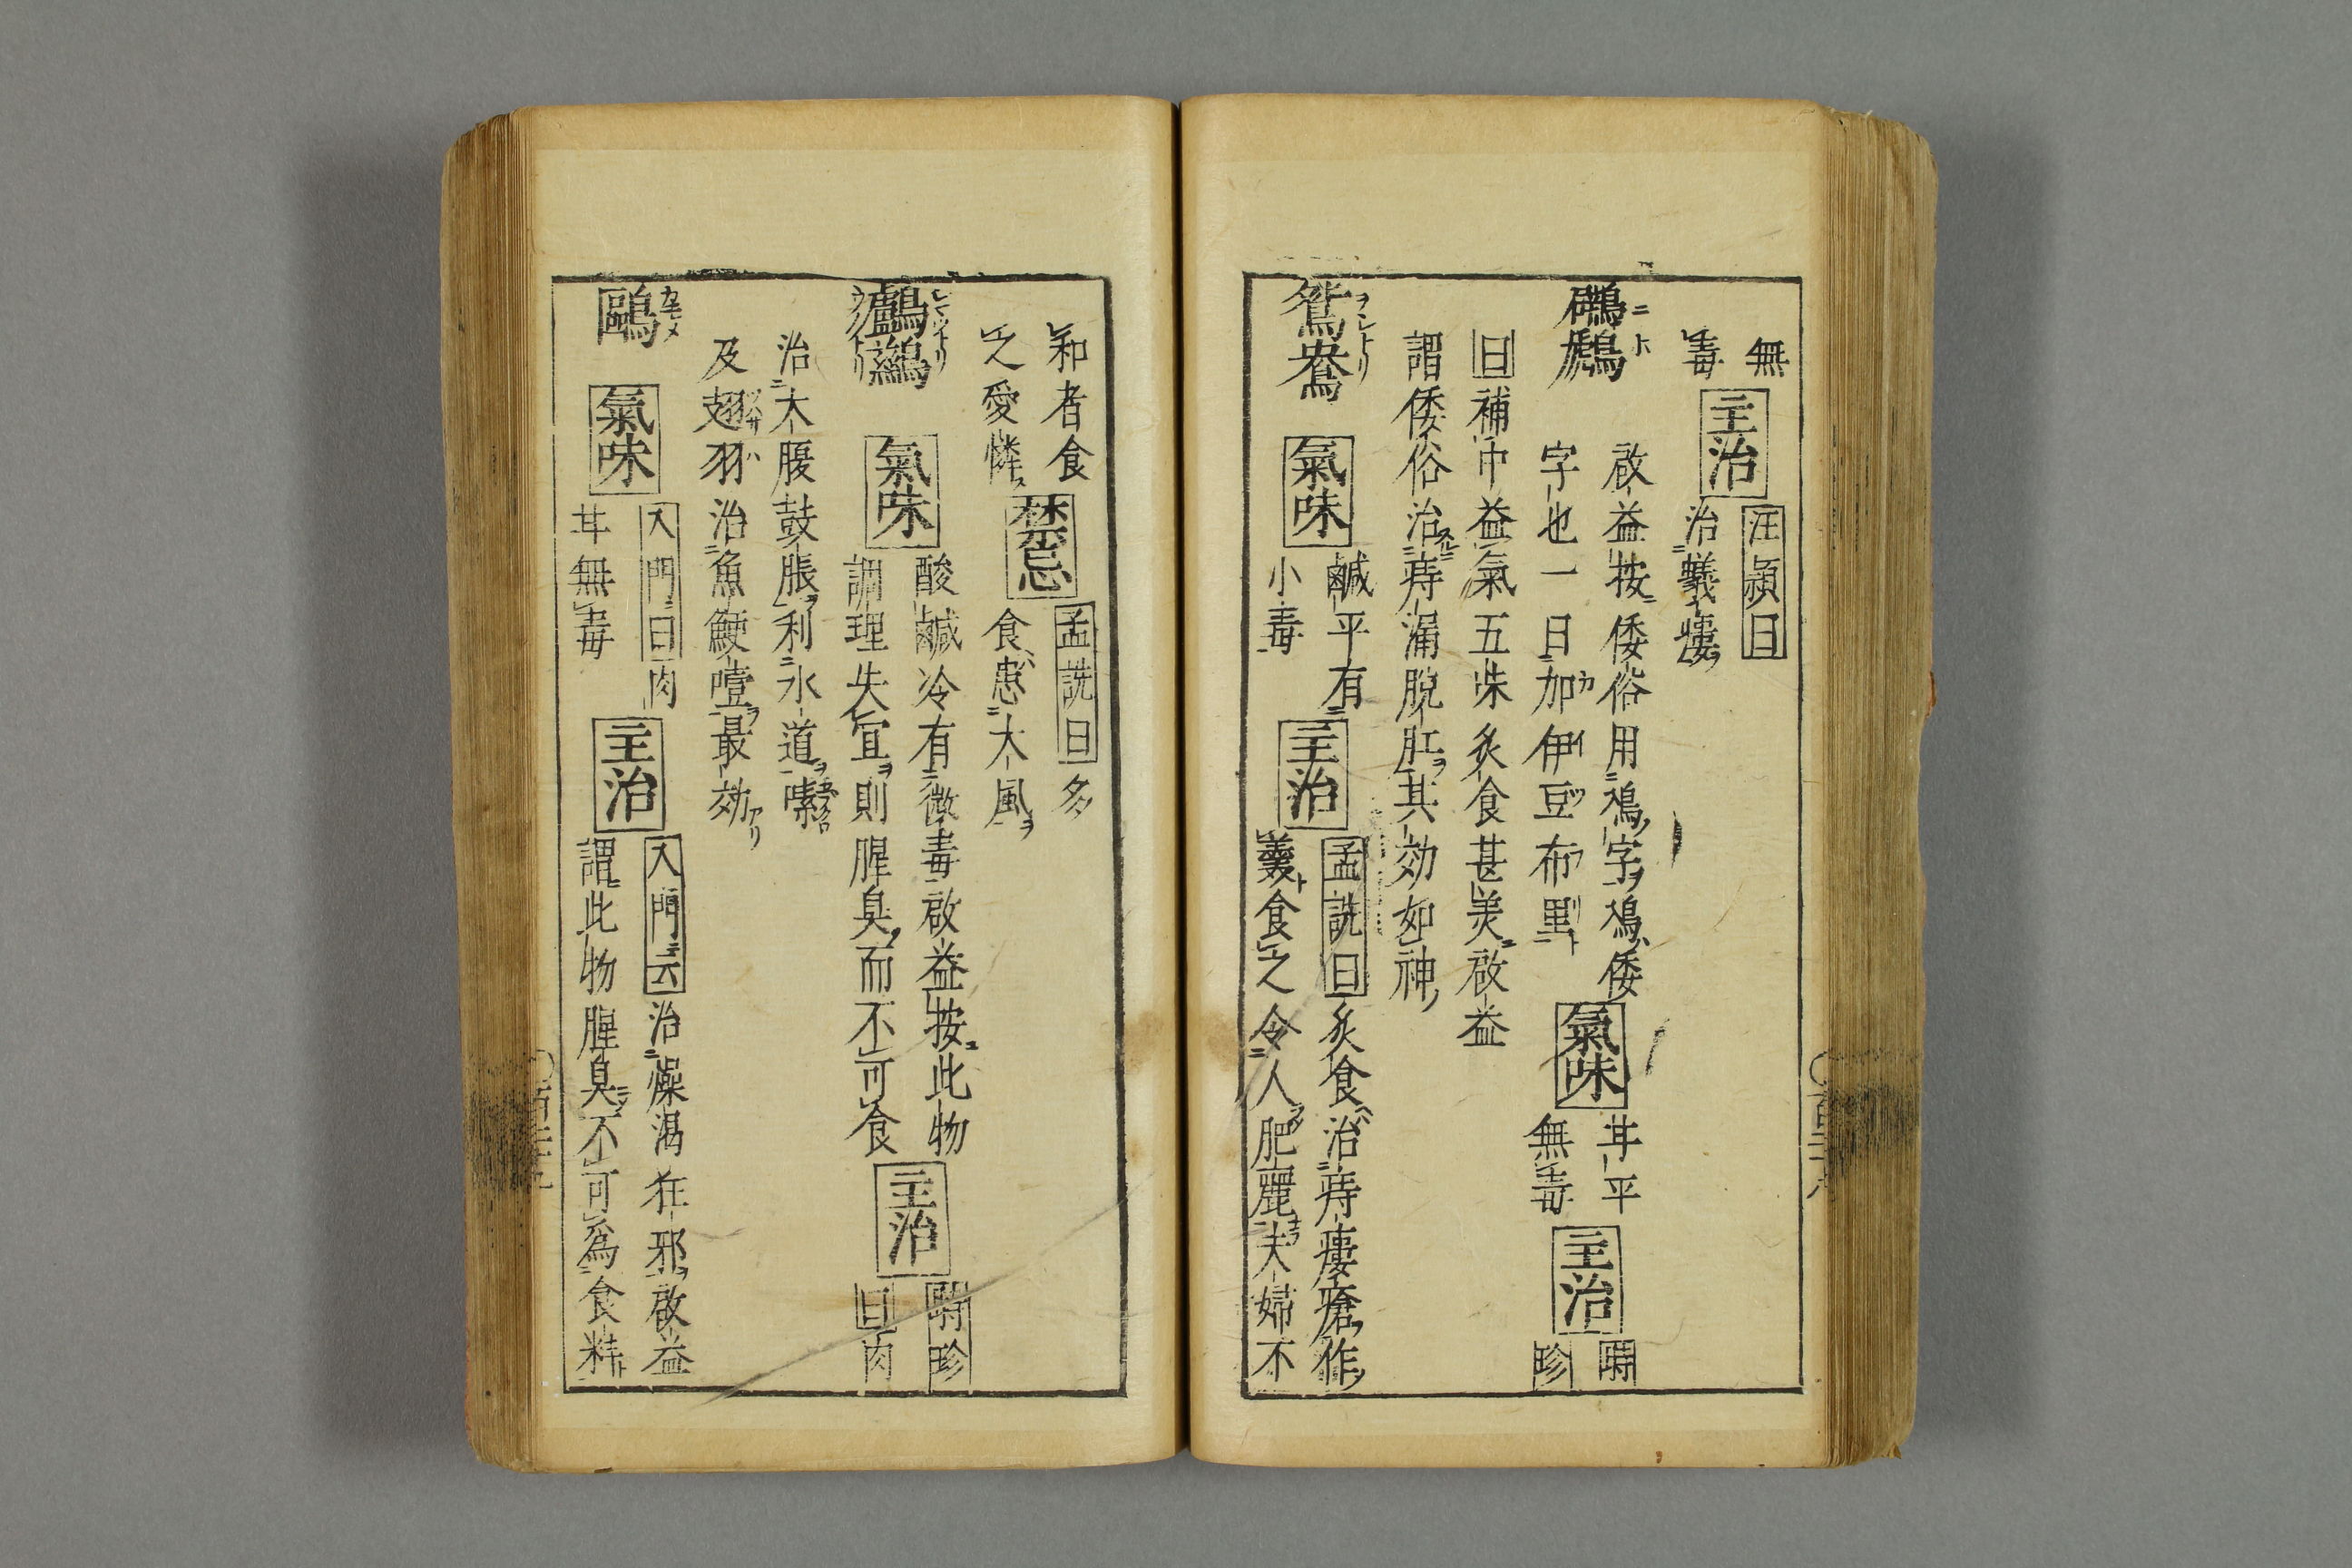 無毒 主治 汪頴曰治蟻瘻
鸊鷉 ニホ 啟益按倭俗用鳰字鳰倭
字也一曰加伊豆布里 氣味 甘平無毒 主治 時珍
曰補中益氣五味炙食甚美啟益
謂倭俗治痔漏脫肛其効如神
鴛鴦 ヲシトリ 氣味 鹹平有小毒 主治 孟詵曰炙食治痔瘻瘡作
羹食之令人肥麗夫婦不
和者食之愛憐 禁忌 孟詵曰多食患大風
鸕鷀 氣味 酸鹹冷有微毒啟益按此物
調理失宜則腥臭而不可食 主治 時珍曰肉
治大腹鼓脹利水道嗉
及翅羽治魚鯁噎最効
鷗 カモメ 氣味 入門曰肉甘無毒 主治 入門云治燥渴狂邪啟益
謂此物腥臭不可為食料